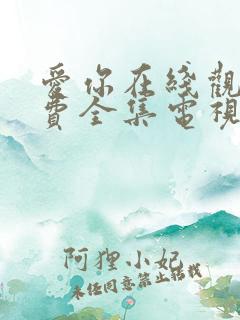 愛你在綫觀
費全集電視
阿狸小妃
未经同意禁止转载